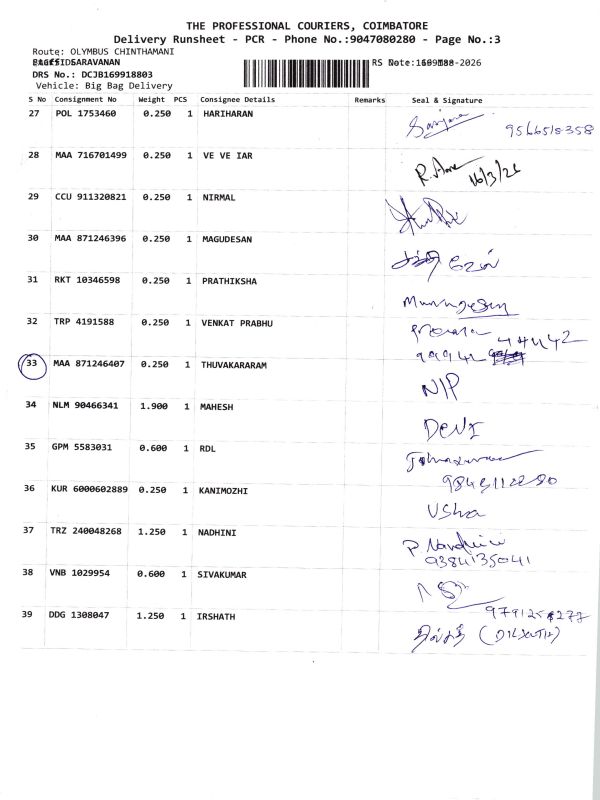 THE PROFESSIONAL COURIERS, COIMBATORE
Delivery Runsheet - PCR - Phone No.:9047080280 - Page No.:3
Route: OLYMBUS CHINTHAMANI
SARAVANAN
DRS No.: DCJB169918803
Vehicle: Big Bag Delivery
S No Consignment No Weight PCS Consignee Details Remarks Seal & Signature
27 POL 1753460 0.250 1 HARIHARAN
28 MAA 716701499 0.250 1 VE VE IAR
16/3/26
29 CCU 911320821 0.250 1 NIRMAL
30 MAA 871246396 0.250 1 MAGUDESAN
31 RKT 10346598 0.250 1 PRATHIKSHA
32 TRP 4191588 0.250 1 VENKAT PRABHU
33 MAA 871246407 0.250 1 THUVAKARARAM
N/P
34 NLM 90466341 1.900 1 MAHESH
DeNI
35 GPM 5583031 0.600 1 RDL
36 KUR 6000602889 0.250 1 KANIMOZHI
Usha
37 TRZ 240048268 1.250 1 NADHINI
P. Nandhini
9384135041
38 VNB 1029954 0.600 1 SIVAKUMAR
39 DDG 1308047 1.250 1 IRSHATH